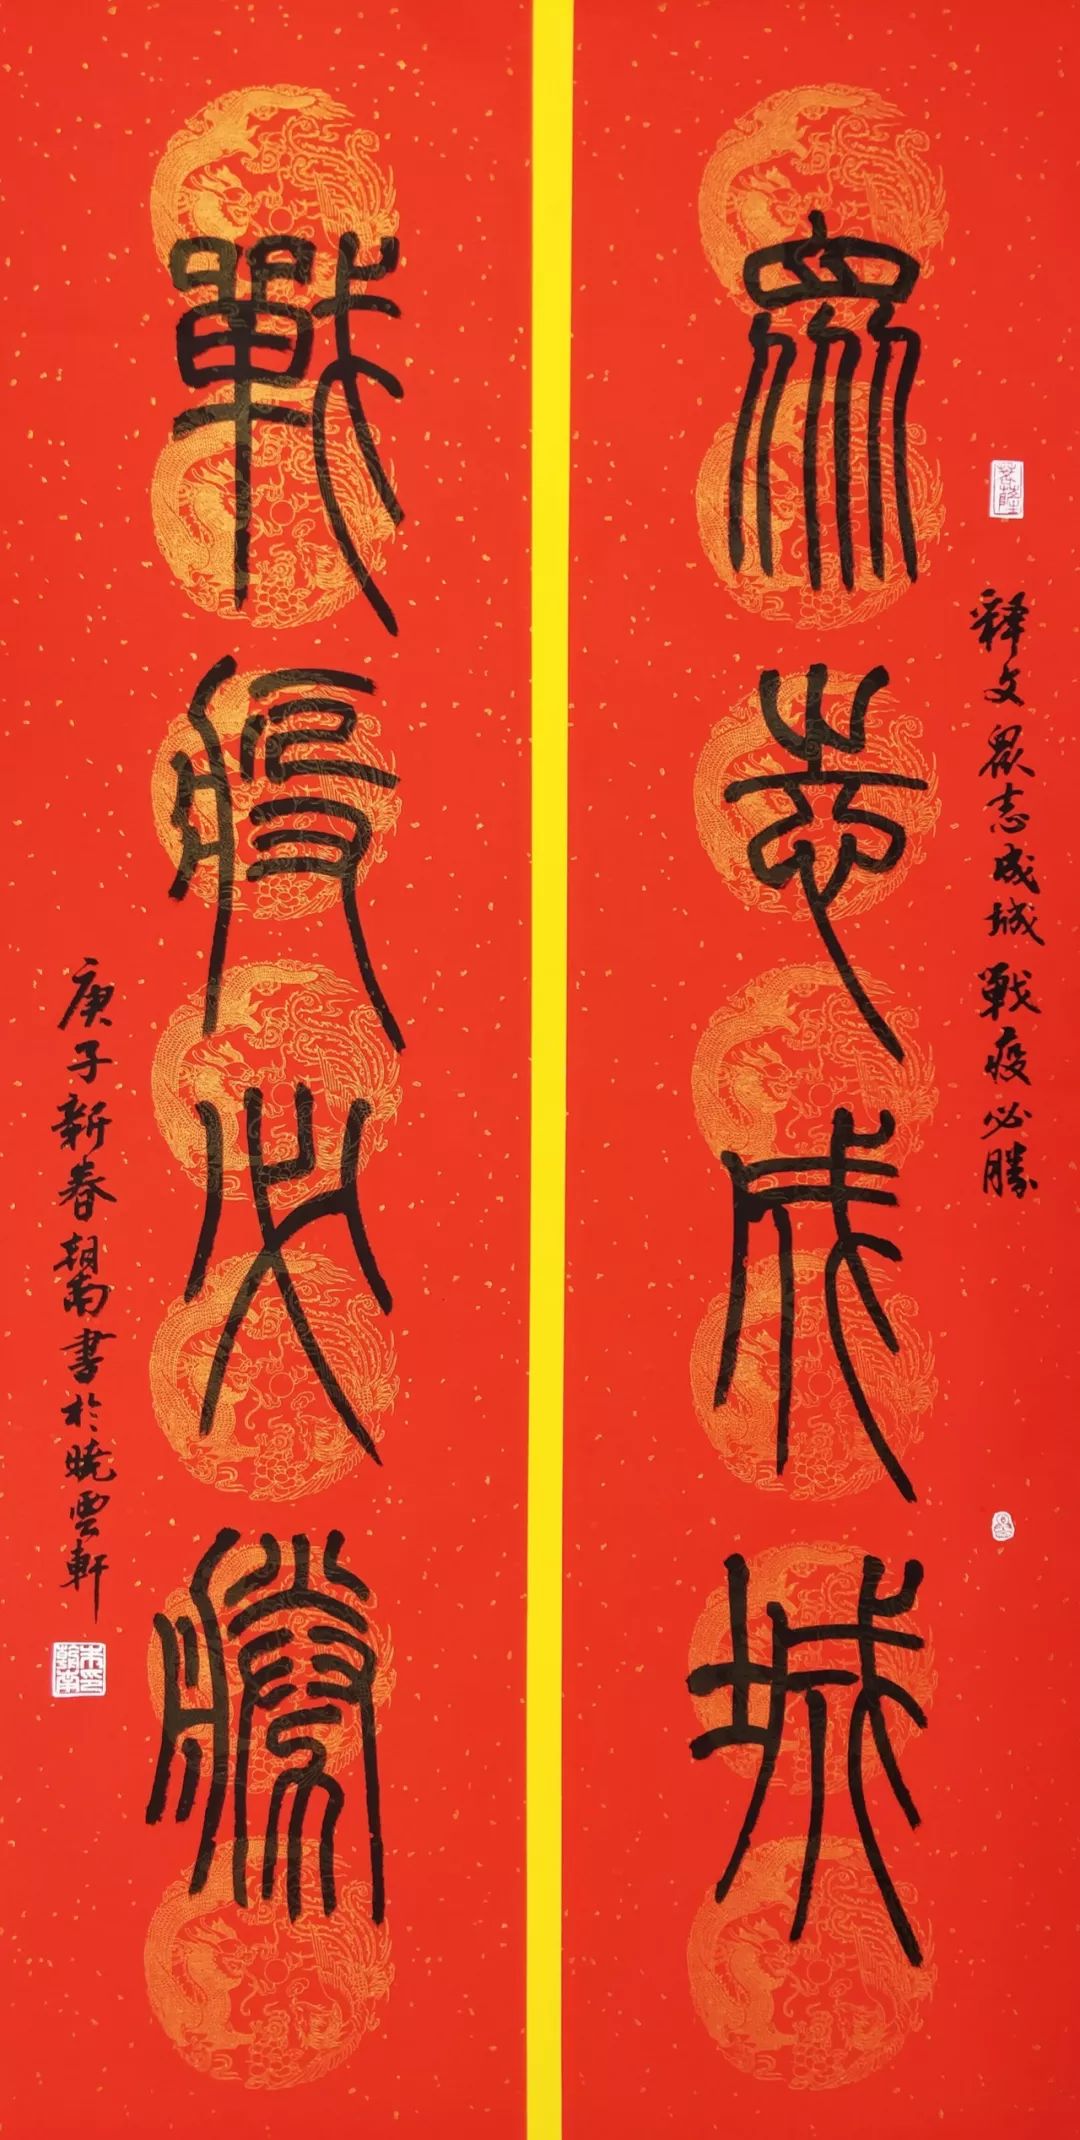 释文眾志成城 戰疫必勝
眾志成城
戰疫必勝
庚子新春翰南書於曉雲軒